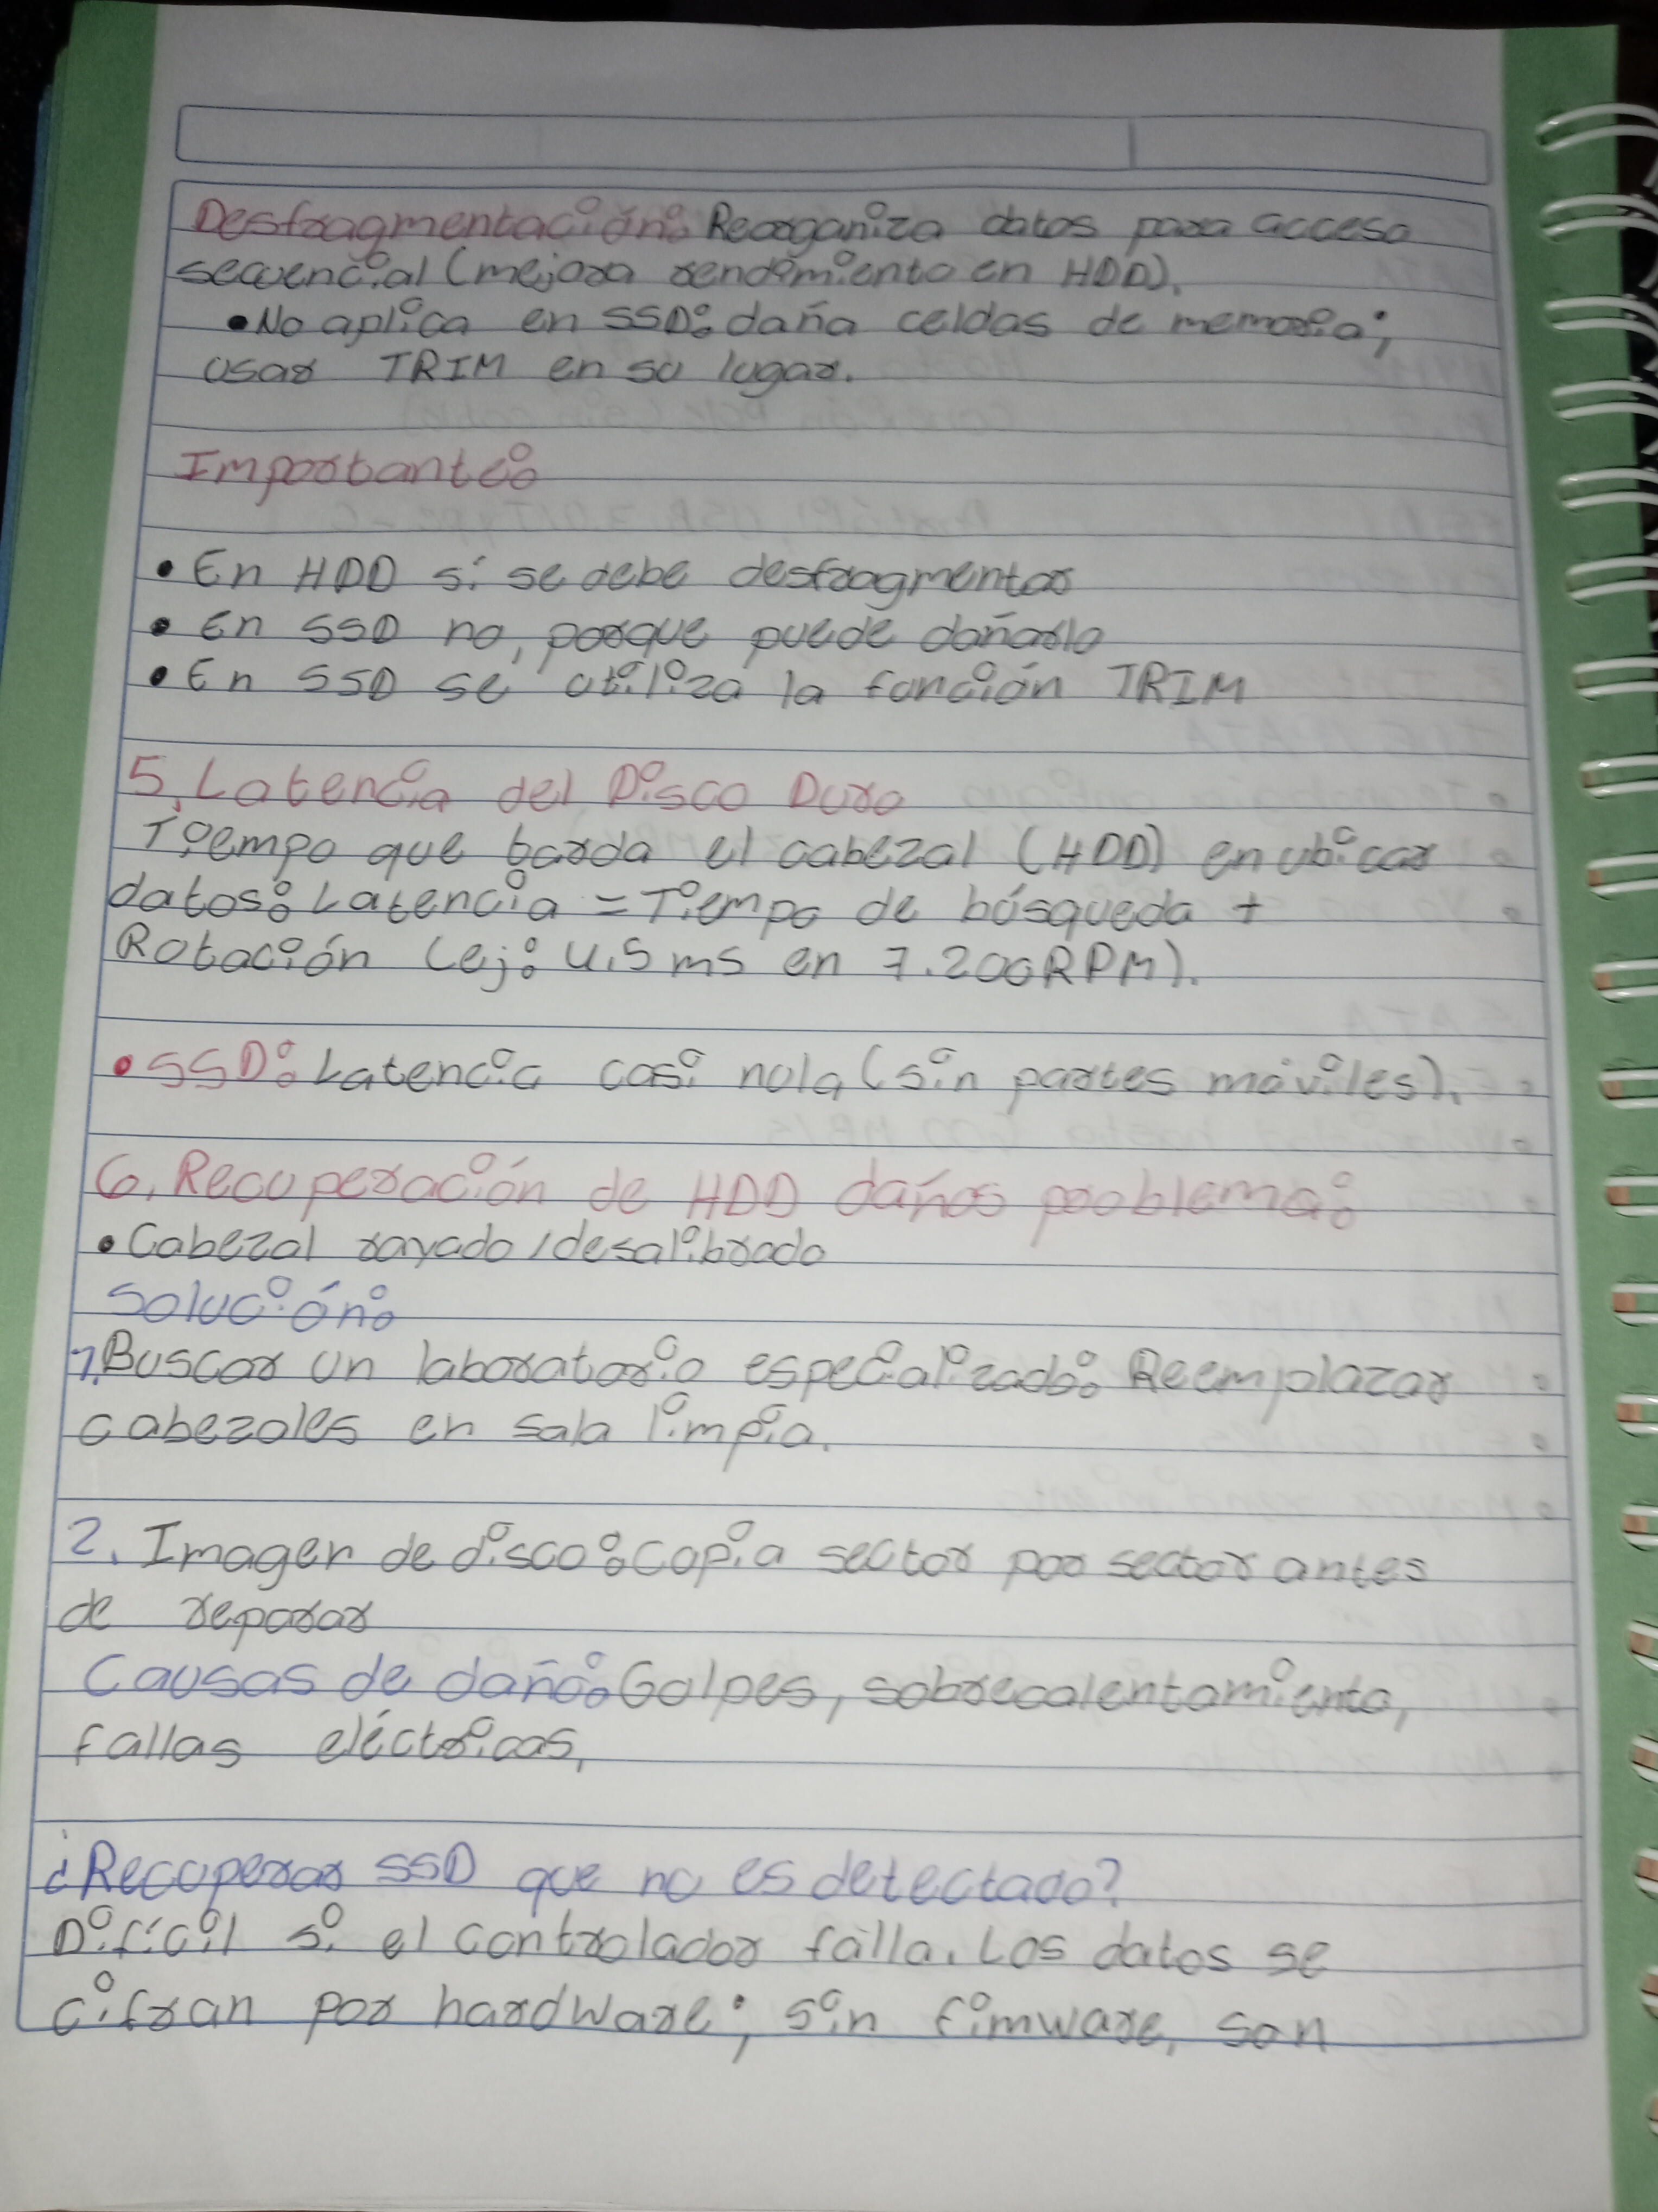 Desfragmentación: Reorganiza datos para acceso
secuencial (mejora rendimiento en HDD).
• No aplica en SSD: daña celdas de memoria;
usar TRIM en su lugar.
Importante:
• En HDD sí se debe desfragmentar
• En SSD no, porque puede dañarlo
• En SSD se utiliza la función TRIM
5. Latencia del Disco Duro
Tiempo que tarda el cabezal (HDD) en ubicar
datos: Latencia = Tiempo de búsqueda +
Rotación (ej: 4.5 ms en 7.200RPM).
• SSD: Latencia casi nula (sin partes móviles).
6. Recuperación de HDD daños problema:
• Cabezal rayado/desalibrado
Solución:
1. Buscar un laboratorio especializado: Reemplazar
cabezales en sala limpia.
2. Imagen de disco: copia sector por sector antes
de reparar
Causas de daño: Golpes, sobrecalentamiento,
fallas eléctricas,
¿Recuperar SSD que no es detectado?
Difícil si el controlador falla. Los datos se
cifran por hardware; sin fimware, son